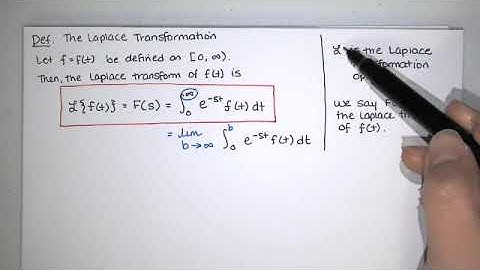 Def. The Laplace Transformation
Let f=f(t) be defined on [0, ∞).
Then, the Laplace transform of f(t) is
ℒ{f(t)} = F(s) = ∫₀^∞ e^(-st) f(t) dt
= lim b→∞ ∫₀^b e^(-st) f(t) dt
ℒ is the Laplace
We say
the laplace
of f(t).